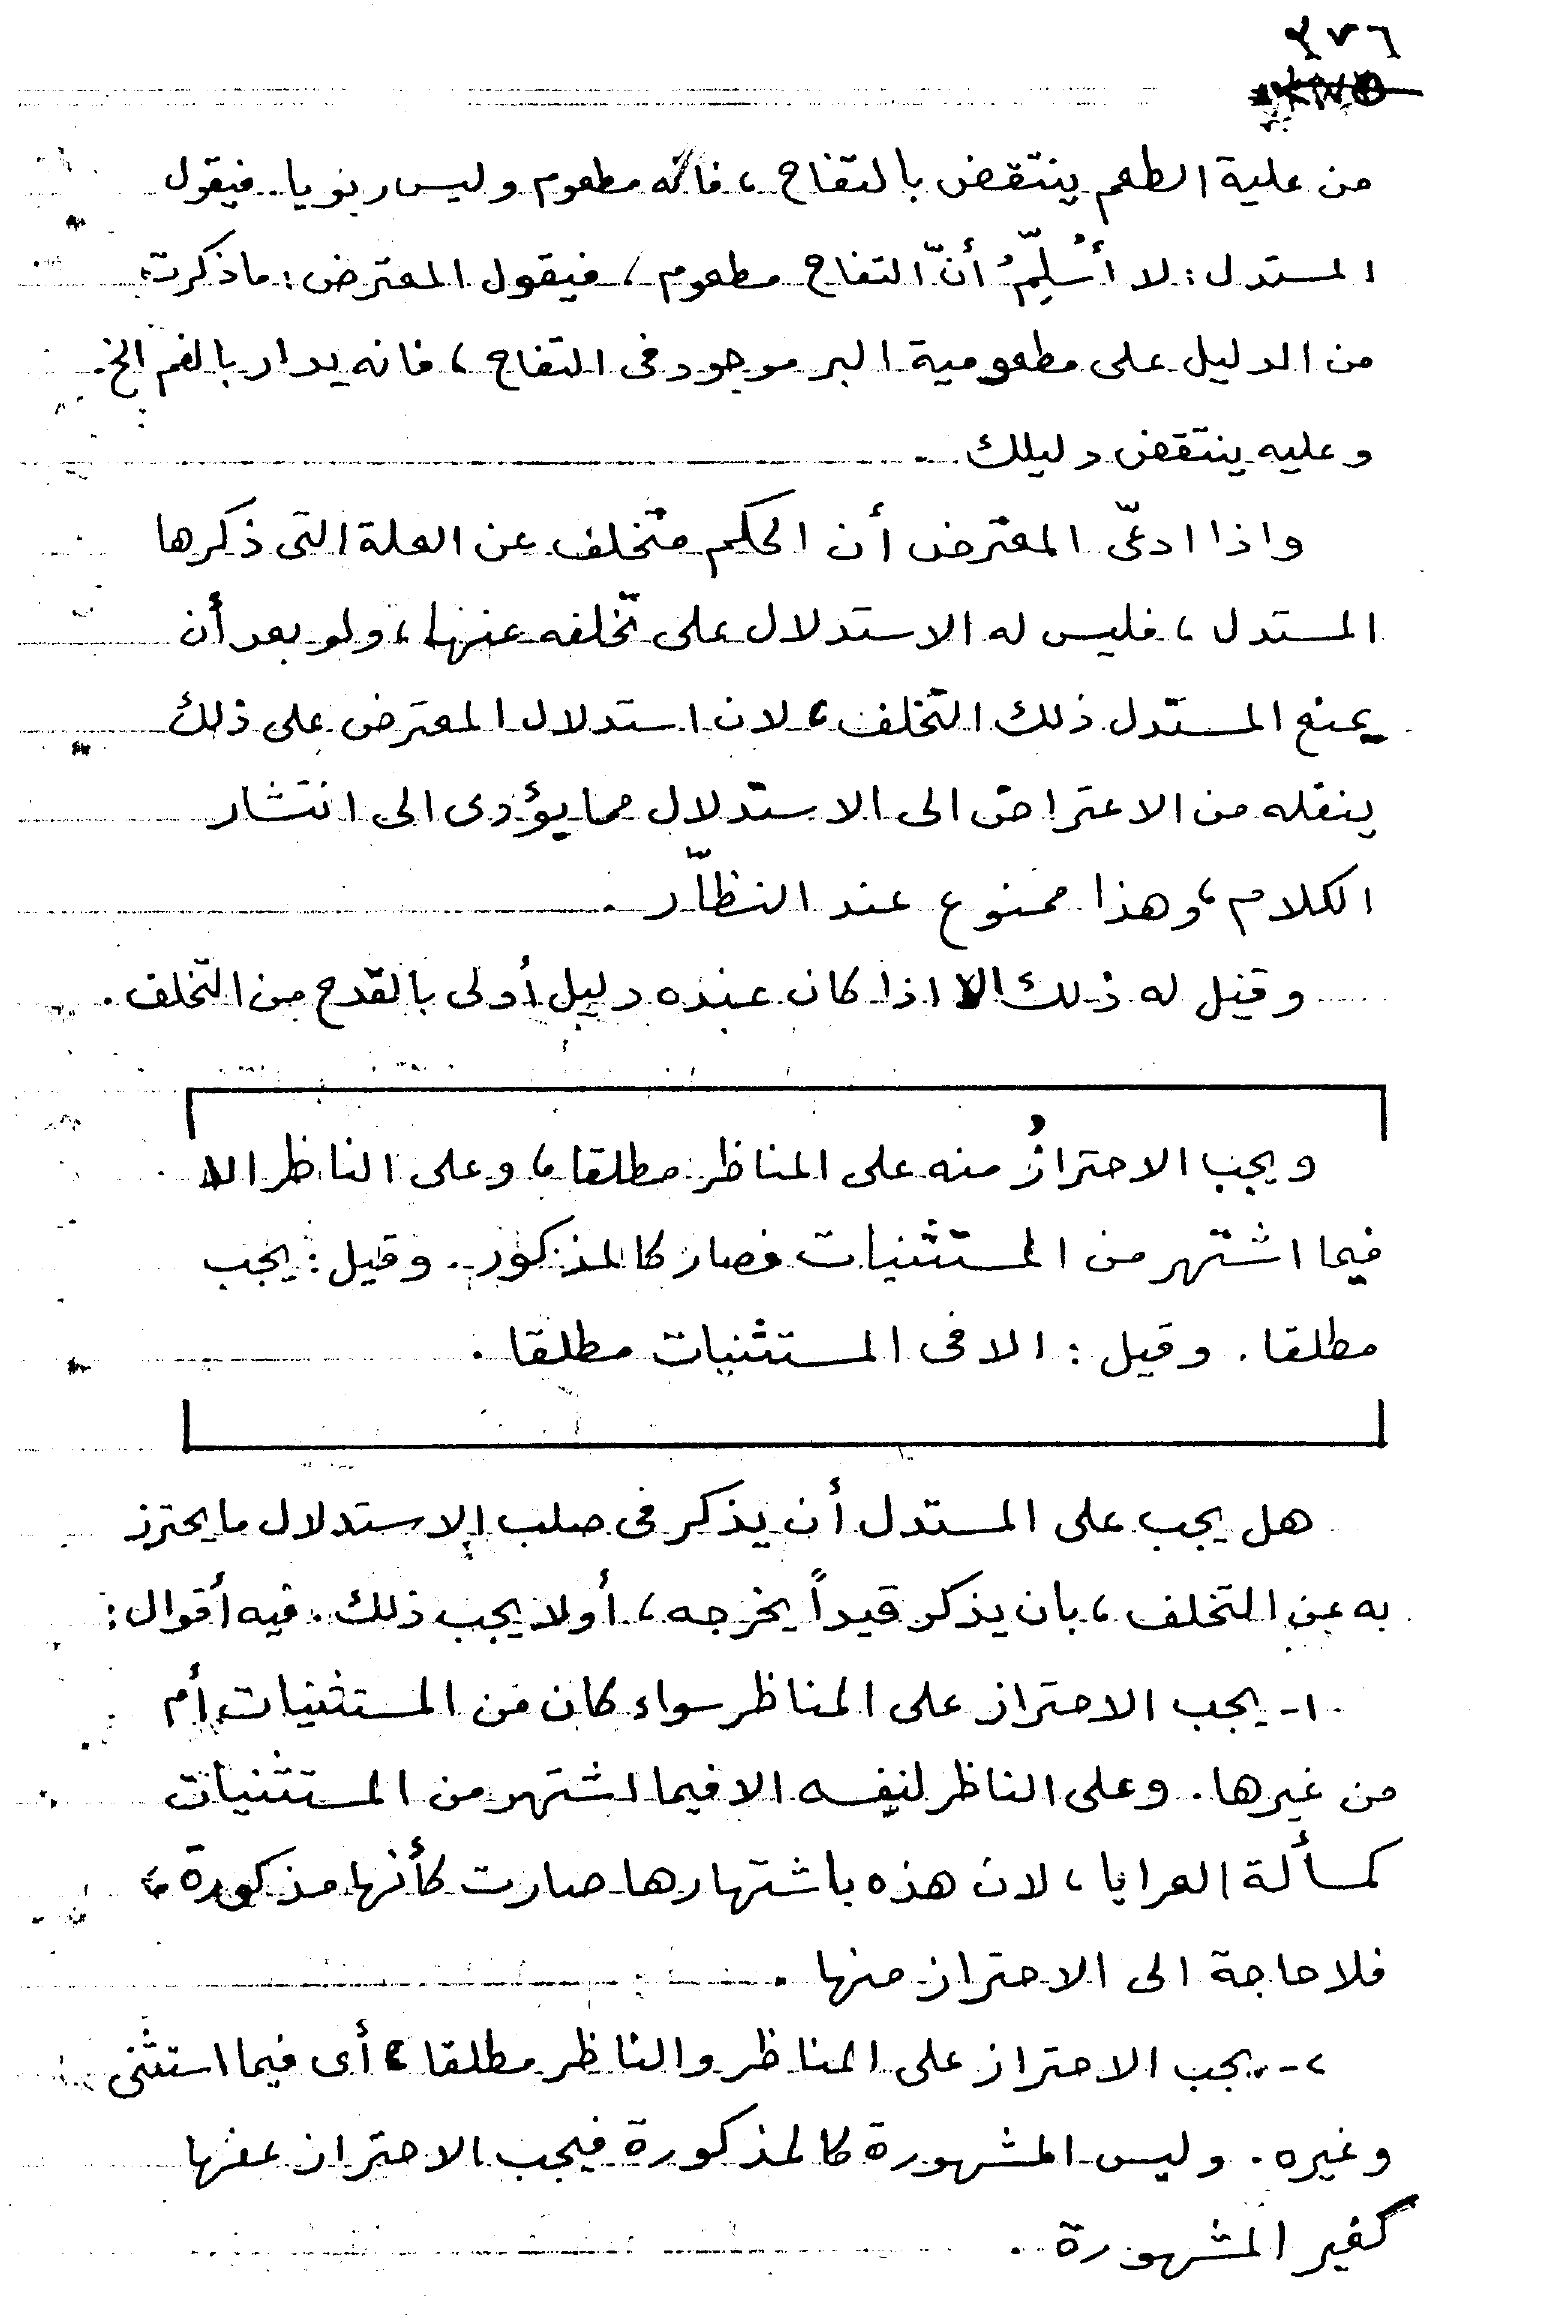 ٢٧٦
من علية الطعم ينتقض بالتفاح ، فانه مطعوم وليس ربويا. فيقول
المستدل : لا أُسلِّمُ أنّ التفاح مطعوم ، فيقول المعترض : ما ذكرت
من الدليل على مطعومية البر موجود فى التفاح ، فانه يدار بالفم الخ .
وعليه ينتقض دليلك .
واذا ادعّى المعترض أن الحكم متخلف عن العلة التى ذكرها
المستدل ، فليس له الاستدلال على تخلفه عنها ، ولو بعد أن
يمنع المستدل ذلك التخلف ، لان استدلال المعترض على ذلك
ينقله من الاعتراض الى الاستدلال مما يؤدى الى انتشار
الكلام ، وهذا ممنوع عند النظاّر .
وقيل له ذلك الا اذا كان عنده دليل أولى بالقدح من التخلف .
ويجب الاحترازُ منه على المناظر مطلقا ، وعلى الناظر الا
فيما اشتهر من المستثنيات فصار كالمذكور . وقيل : يجب
مطلقا . وقيل : الا فى المستثنيات مطلقا .
هل يجب على المستدل أن يذكر فى صلب الاستدلال ما يحترز
به عن التخلف ، بان يذكر قيداً يخرجه ، أولا يجب ذلك . فيه أقوال :
١- يجب الاحتراز على المناظر سواء كان من المستثنيات أم
من غيرها . وعلى الناظر لنفسه الا فيما اشتهر من المستثنيات
كمسألة العرايا ، لان هذه باشتهارها صارت كأنها مذكورة ،
فلا حاجة الى الاحتراز منها .
٢- يجب الاحتراز على المناظر والناظر مطلقا ، أى فيما استثنى
وغيره . وليس المشهورة كالمذكورة فيجب الاحتراز عنها
كغير المشهورة .